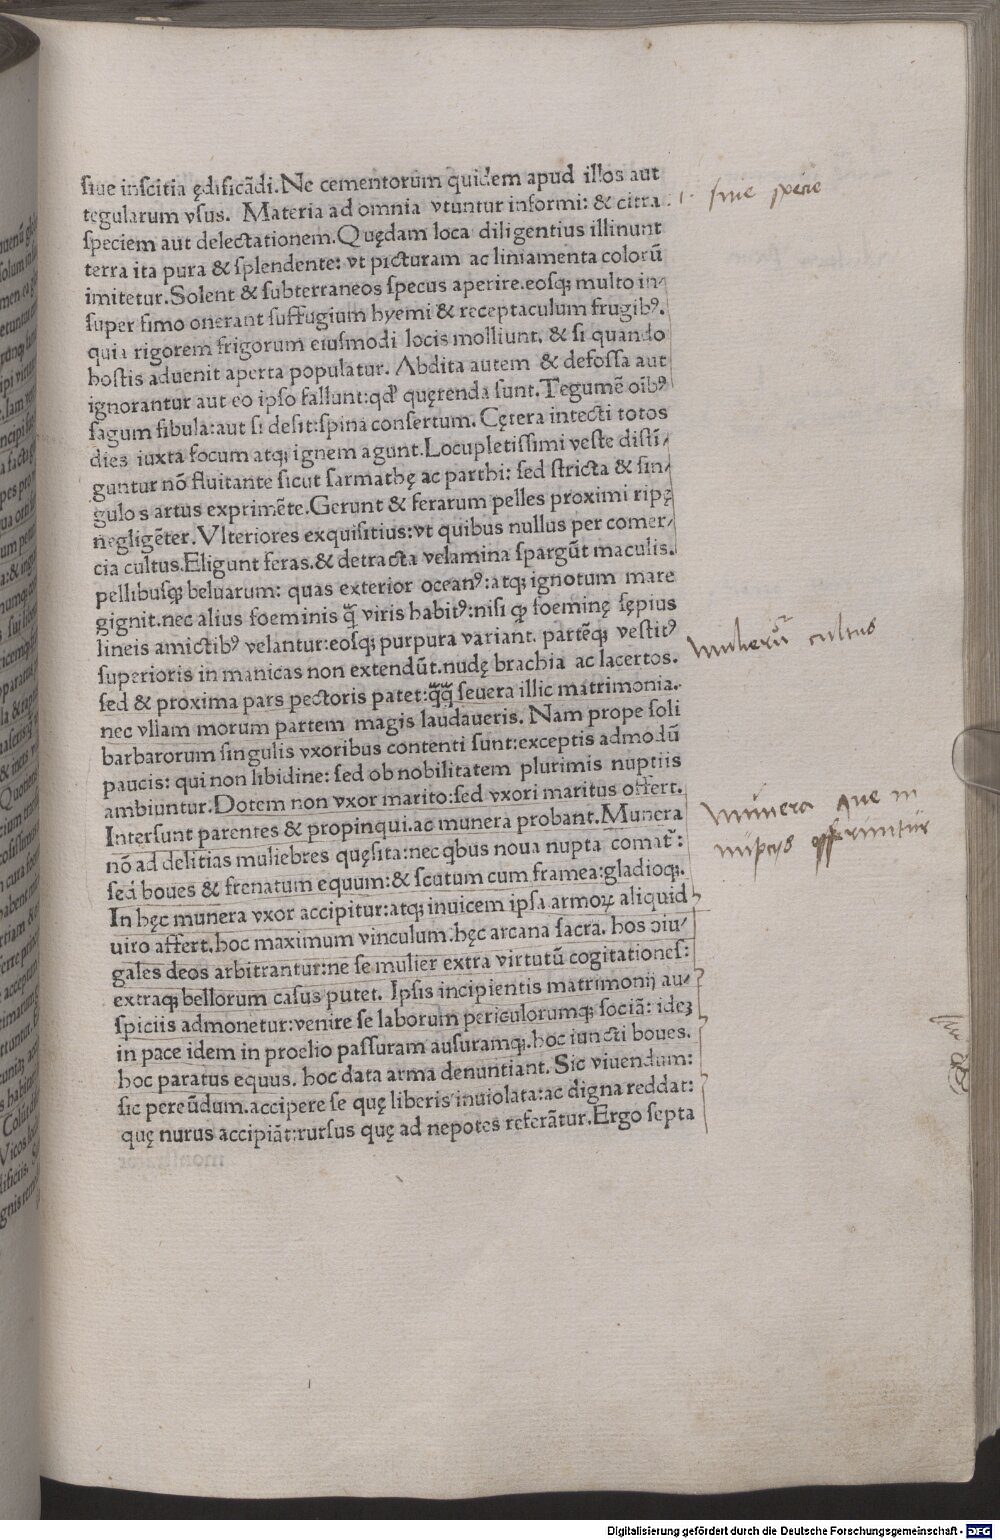 siue inscitia ędificãdi.Ne cementorum quidem apud illos aut
tegularum vsus. Materia ad omnia vtuntur informi: & citra
speciem aut delectationem.Quędam loca diligentius illinunt
terra ita pura & splendente: vt picturam ac liniamenta colorũ
imitetur.Solent & subterraneos specus aperire.eosqȝ multo in⸗
super fimo onerant suffugium hyemi & receptaculum frugibꝰ.
quia rigorem frigorum eiusmodi locis molliunt. & si quando
hostis aduenit aperta populatur. Abdita autem & defossa aut
ignorantur aut eo ipso fallunt:qđ quęrenda sunt.Tegumẽ oĩbꝰ
sagum fibula:aut si desit:spina consertum. Cętera intecti totos
dies iuxta focum atqȝ ignem agunt.Locupletissimi veste disti⸗
guntur nõ fluitante sicut sarmathę ac parthi: sed stricta & sin⸗
gulos artus exprimẽte.Gerunt & ferarum pelles proximi ripę
negligẽter.Vlteriores exquisitius:vt quibus nullus per comer⸗
cia cultus.Eligunt feras.& detracta velamina spargũt maculis.
pellibusqȝ beluarum: quas exterior oceanꝰ:atqȝ ignotum mare
gignit.nec alius foeminis q̃ viris habitꝰ:nisi ꝙ foeminę sępius
lineis amictibꝰ velantur:eosqȝ purpura variant. partẽqȝ vestitꝰ
superioris in manicas non extendũt.nudę brachia ac lacertos.
sed & proxima pars pectoris patet:q̃q̃ seuera illic matrimonia.
nec vllam morum partem magis laudaueris. Nam prope soli
barbarorum singulis vxoribus contenti sunt:exceptis admodũ
paucis: qui non libidine: sed ob nobilitatem plurimis nuptiis
ambiuntur.Dotem non vxor marito:sed vxori maritus offert.
Intersunt parentes & propinqui.ac munera probant.Munera
nõ ad delitias muliebres quęsita:nec qbus noua nupta comat᷑:
sed boues & frenatum equum:& scutum cum framea:gladioqȝ.
In hęc munera vxor accipitur:atqȝ inuicem ipsa armoꝝ aliquid
uiro affert.hoc maximum vinculum:hęc arcana sacra. hos ɔiu⸗
gales deos arbitrantur:ne se mulier extra virtutũ cogitationes:
extraqȝ bellorum casus putet. Ipsis incipientis matrimonij au⸗
spiciis admonetur:venire se laborum periculorumqȝ sociã: ideȝ
in pace idem in proelio passuram ausuramqȝ.hoc iuncti boues.
hoc paratus equus. hoc data arma denuntiant. Sic viuendum:
sic pereũdum.accipere se quę liberis inuiolata:ac digna reddat:
quę nurus accipiãt:rursus quę ad nepotes referãtur.Ergo septa
mulierũ cultus
munera que in
nuptijs offeruntur
Digitalisierung gefördert durch die Deutsche Forschungsgemeinschaft - DFG